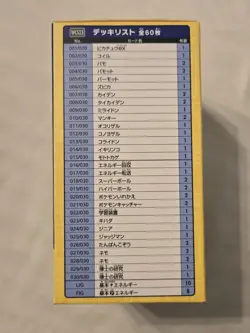 デッキリスト 全60枚
No. カード名 枚数
001/030 ピカチュウex 1
002/030 コイル 2
003/030 パモ 2
004/030 パモット 2
005/030 パーモット 2
006/030 ズピカ 1
007/030 カイデン 2
008/030 タイカイデン 2
009/030 ミライドン 1
010/030 マンキー 2
011/030 オコリザル 1
012/030 コノヨザル 1
013/030 コライドン 1
014/030 イキリンコ 1
015/030 モトトカゲ 1
016/030 エネルギー回収 1
017/030 エネルギー転送
018/030 スーパーボール
019/030 ハイパーボール
020/030 ポケモンいれかえ
021/030 ポケモンキャッチャー
022/030 学習装置
023/030 キハダ
024/030 ジニア
025/030 ジャッジマン
026/030 たんぱんこぞう
027/030 ネモ
028/030 ネモ
029/030 博士の研究
030/030 博士の研究
LIG 基本雷エネルギー 10
FIG 基本闘エネルギー